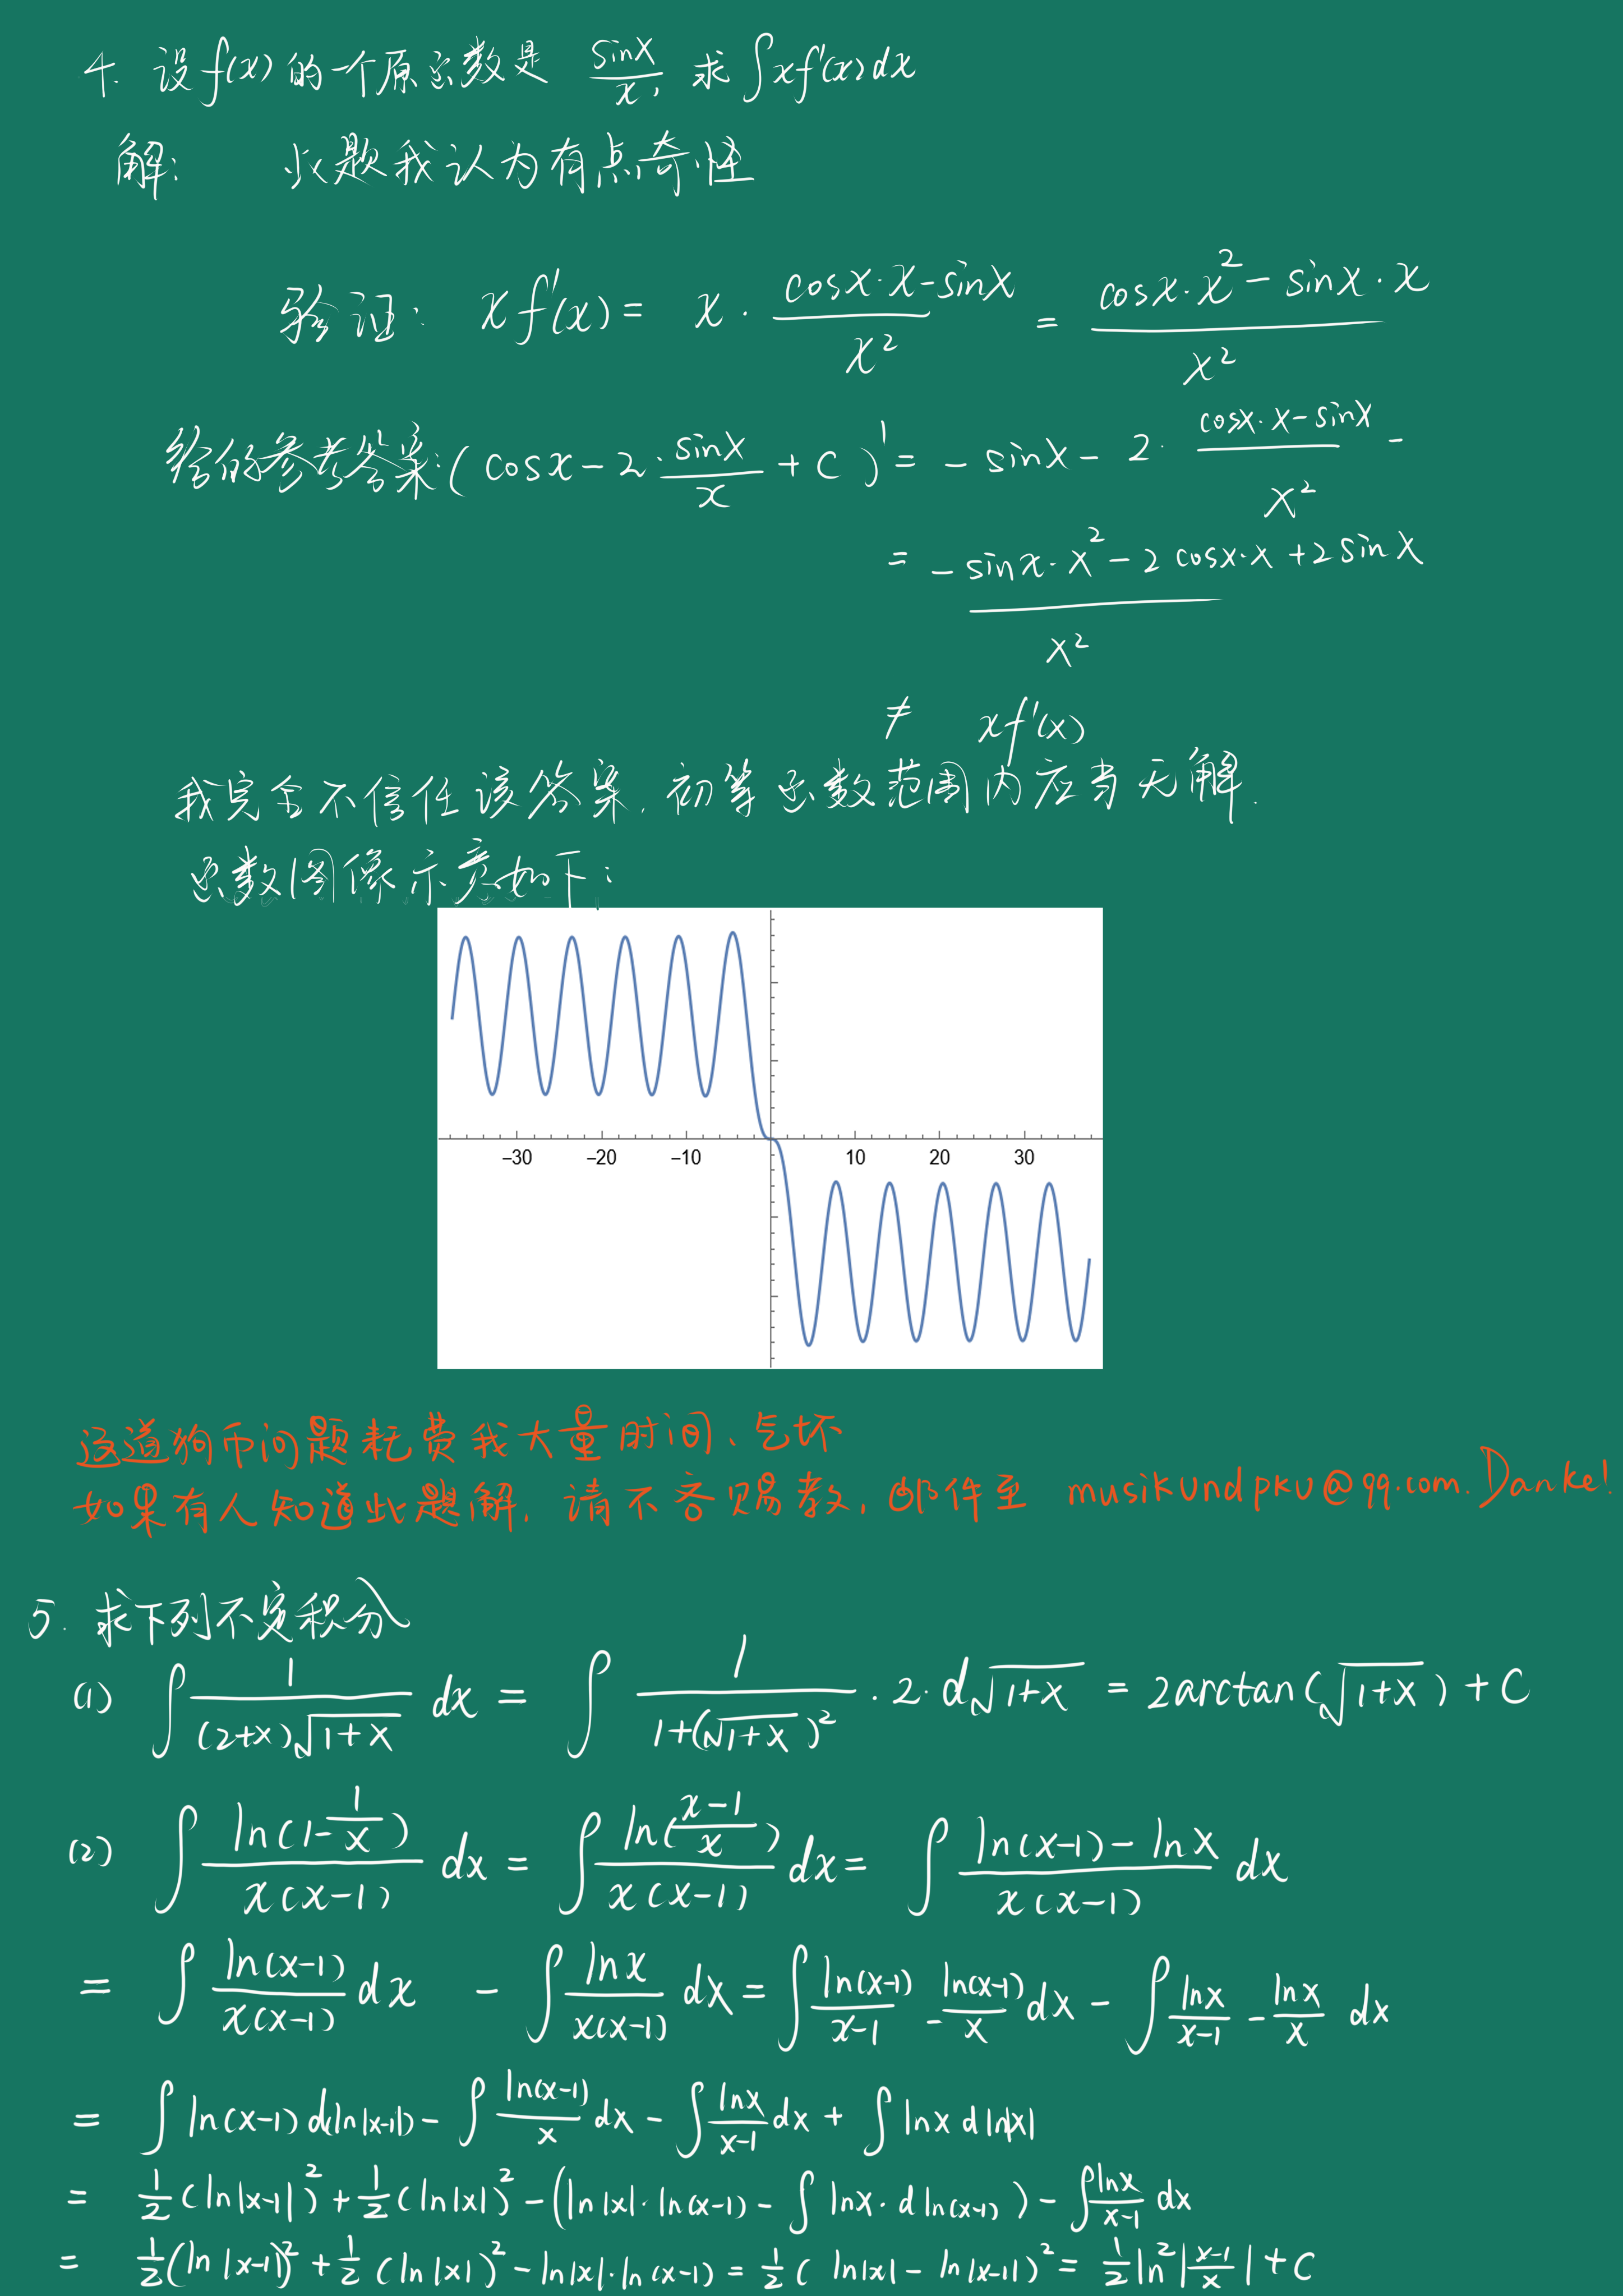 4. 设f(x)的一个原函数是 sinx/x, 求∫xf'(x)dx
解: 此题我认为有点奇怪
验证: xf'(x) = x · (cosx·x-sinx)/x² = (cosx·x² - sinx·x)/x²
给的参考答案: (cosx - 2·sinx/x + C)' = - sinx - 2· (cosx·x-sinx)/x² -
= (-sinx·x² - 2cosx·x + 2sinx)/x²
≠ xf'(x)
我完全不信任该答案, 初等函数范围内应当无解.
函数图像示意如下:
-30 -20 -10 10 20 30
这道狗币问题耗费我大量时间、气坏
如果有人知道此题解, 请不吝赐教, 邮件至 musikundpku@qq.com. Danke!
5. 求下列不定积分
(1) ∫ 1/((2+x)√(1+x)) dx = ∫ 1/(1+(√(1+x))²) · 2· d√(1+x) = 2arctan(√(1+x)) + C
(2) ∫ ln(1-1/x)/(x(x-1)) dx = ∫ ln((x-1)/x)/(x(x-1)) dx = ∫ (ln(x-1) - lnx)/(x(x-1)) dx
= ∫ ln(x-1)/(x(x-1)) dx - ∫ lnx/(x(x-1)) dx = ∫ ln(x-1)/(x-1) - ln(x-1)/x dx - ∫ lnx/(x-1) - lnx/x dx
= ∫ ln(x-1) d(ln|x-1|) - ∫ ln(x-1)/x dx - ∫ lnx/(x-1) dx + ∫ lnx d ln|x|
= 1/2 (ln|x-1|)² + 1/2 (ln|x|)² - (ln|x|·ln(x-1) - ∫ lnx· d ln(x-1)) - ∫ lnx/(x-1) dx
= 1/2 (ln|x-1|)² + 1/2 (ln|x|)² - ln|x|·ln(x-1) = 1/2 ( ln|x| - ln|x-1|)² = 1/2 ln²|(x-1)/x| + C